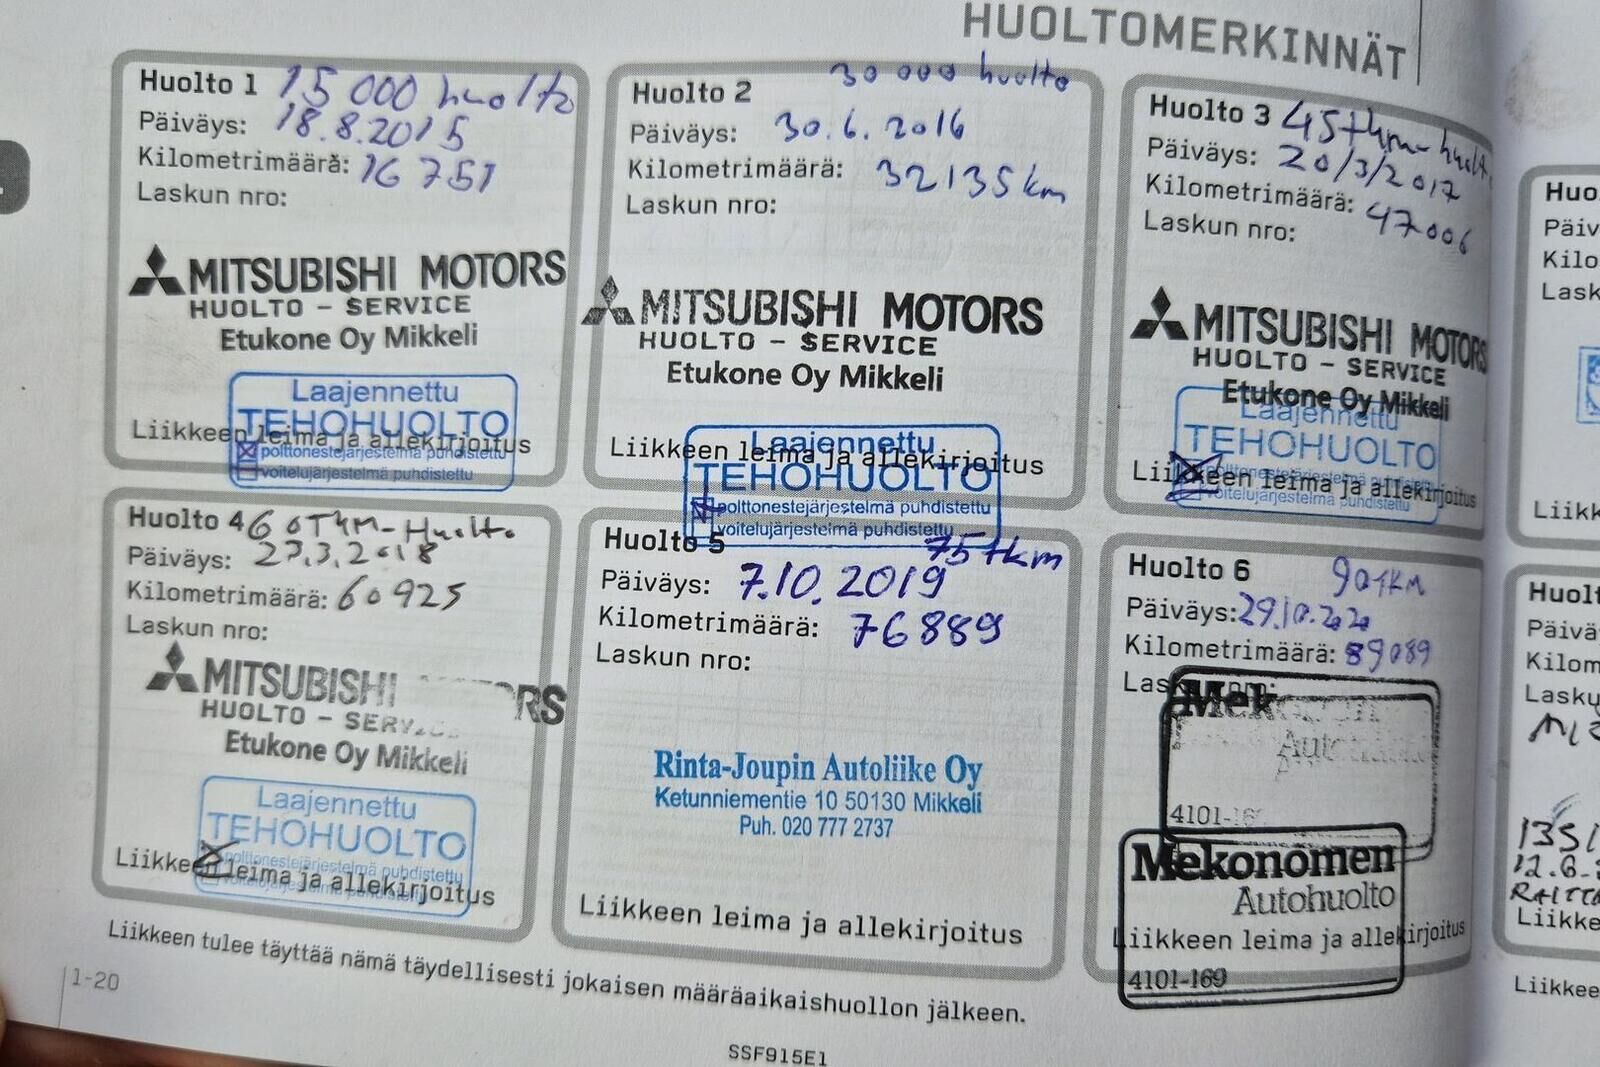 HUOLTOMERKINNÄT
Huolto 1 15 000 huolto
Päiväys: 18.8.2015
Kilometrimäärä: 16 751
Laskun nro:
MITSUBISHI MOTORS
HUOLTO - SERVICE
Etukone Oy Mikkeli
Laajennettu
TEHOHUOLTO
Liikkeen leima ja allekirjoitus
polttonestejärjestelmä puhdistettu
voitelujärjestelmä puhdistettu
Huolto 2 30 000 huolto
Päiväys: 30.6.2016
Kilometrimäärä: 32135 km
Laskun nro:
MITSUBISHI MOTORS
HUOLTO - SERVICE
Etukone Oy Mikkeli
Laajennettu
Liikkeen leima ja allekirjoitus
TEHOHUOLTO
polttonestejärjestelmä puhdistettu
voitelujärjestelmä puhdistettu
Huolto 3 45tkm-huolt
Päiväys: 20/3/2017
Kilometrimäärä: 47006
Laskun nro:
MITSUBISHI MOTORS
HUOLTO - SERVICE
Etukone Oy Mikkeli
Laajennettu
TEHOHUOLTO
polttonestejärjestelmä puhdistettu
Liikkeen leima ja allekirjoitus
voitelujärjestelmä puhdistettu
Huolto 4 60TKM-Huolto
Päiväys: 27.3.2018
Kilometrimäärä: 60925
Laskun nro:
MITSUBISHI MOTORS
HUOLTO - SERVICE
Etukone Oy Mikkeli
Laajennettu
TEHOHUOLTO
polttonestejärjestelmä puhdistettu
Liikkeen leima ja allekirjoitus
Huolto 5 75 tkm
Päiväys: 7.10.2019
Kilometrimäärä: 76889
Laskun nro:
Rinta-Joupin Autoliike Oy
Ketunniementie 10 50130 Mikkeli
Puh. 020 777 2737
Liikkeen leima ja allekirjoitus
Huolto 6 90TKM
Päiväys: 29.10.2020
Kilometrimäärä: 89089
Laskun nro:
4101-16
Mekonomen
Autohuolto
Liikkeen leima ja allekirjoitus
4101-169
Huo
Päiv
Kilo
Lask
Liikk
Huolt
Päivä
Kilom
Lasku
12.6.
Liikke
Liikkeen tulee täyttää nämä täydellisesti jokaisen määräaikaishuollon jälkeen.
Liikkee
1-20
SSF915E1